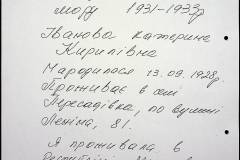 мору 1931-1933р
Іванова Катерина
Кирилівна
Народилася 13.09.1928р.
Проживає в селі
Пересадівка, по вулиці
Леніна, 81.
Я проживала в